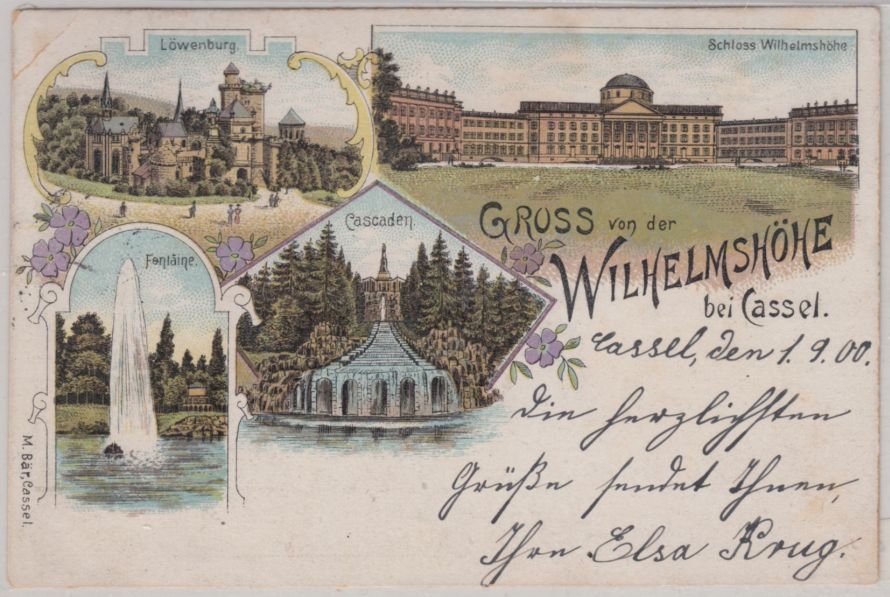 Löwenburg.
Schloss Wilhelmshöhe
Cascaden.
Fontäine.
GRUSS von der
WILHELMSHÖHE
bei Cassel.
Cassel, den 1.9.00.
Die herzlichsten
Grüße sendet Ihnen,
Ihre Elsa Krug.
M. Bär, Cassel.